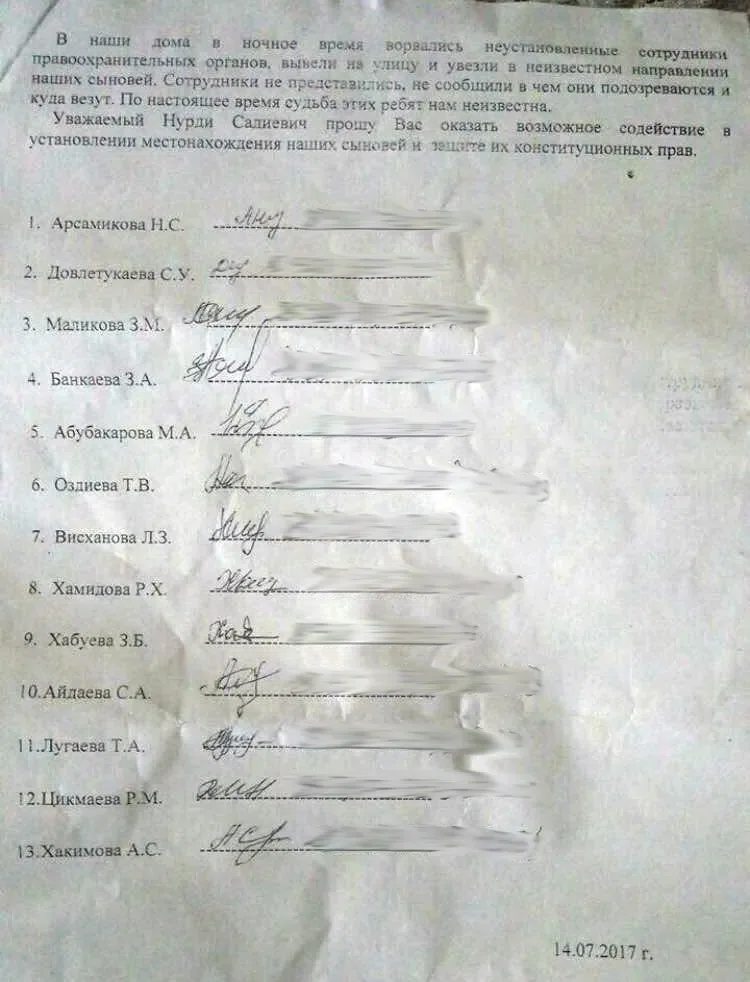 В наши дома в ночное время ворвались неустановленные сотрудники
правоохранительных органов, вывели на улицу и увезли в неизвестном направлении
наших сыновей. Сотрудники не представились, не сообщили в чем они подозреваются и
куда везут. По настоящее время судьба этих ребят нам неизвестна.
Уважаемый Нурди Садиевич прошу Вас оказать возможное содействие в
установлении местонахождения наших сыновей и защите их конституционных прав.
1. Арсамикова Н.С.
2. Довлетукаева С.У.
3. Маликова З.М.
4. Банкаева З.А.
5. Абубакарова М.А.
6. Оздиева Т.В.
7. Висханова Л.З.
8. Хамидова Р.Х.
9. Хабуева З.Б.
10.Айдаева С.А.
11.Лугаева Т.А.
12.Цикмаева Р.М.
13.Хакимова А.С.
14.07.2017 г.